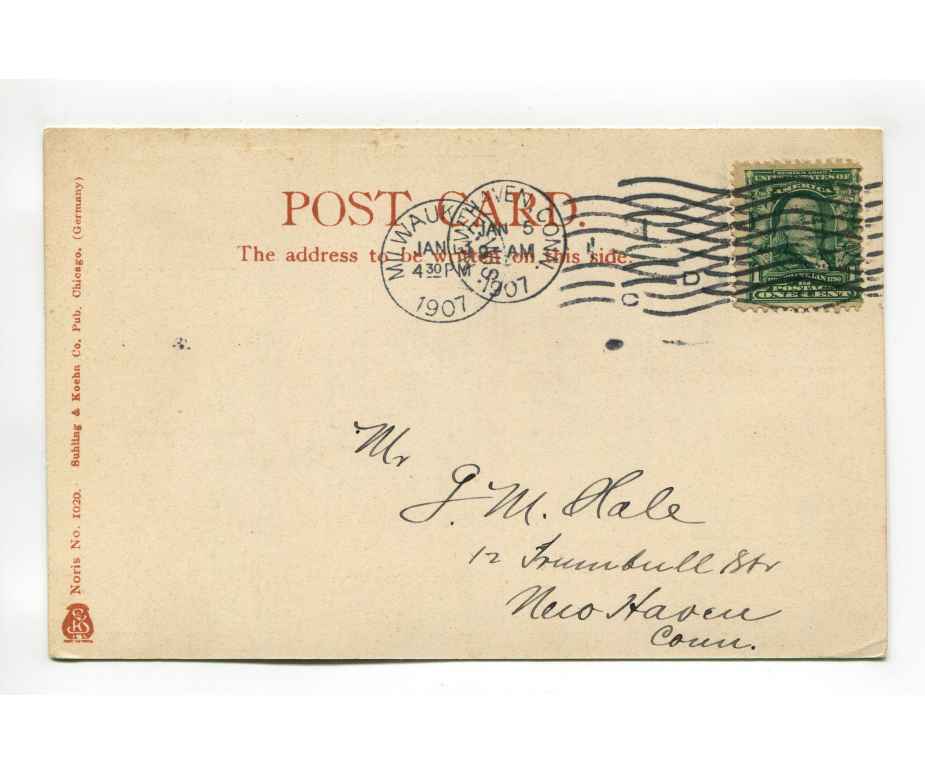 POST CARD.
The address to be written on this side.
MILWAUKEE WIS.
JAN 3
4 30 PM
1907
NEW HAVEN CONN.
JAN 5
AM
1907
1
D
C
SERIES 1902
UNITED STATES OF
AMERICA
POSTAGE
ONE CENT
Mr
G. M. Hale
12 Trumbull Str
New Haven
Conn.
Noris No. 1020. Suhling & Koehn Co. Pub. Chicago. (Germany)